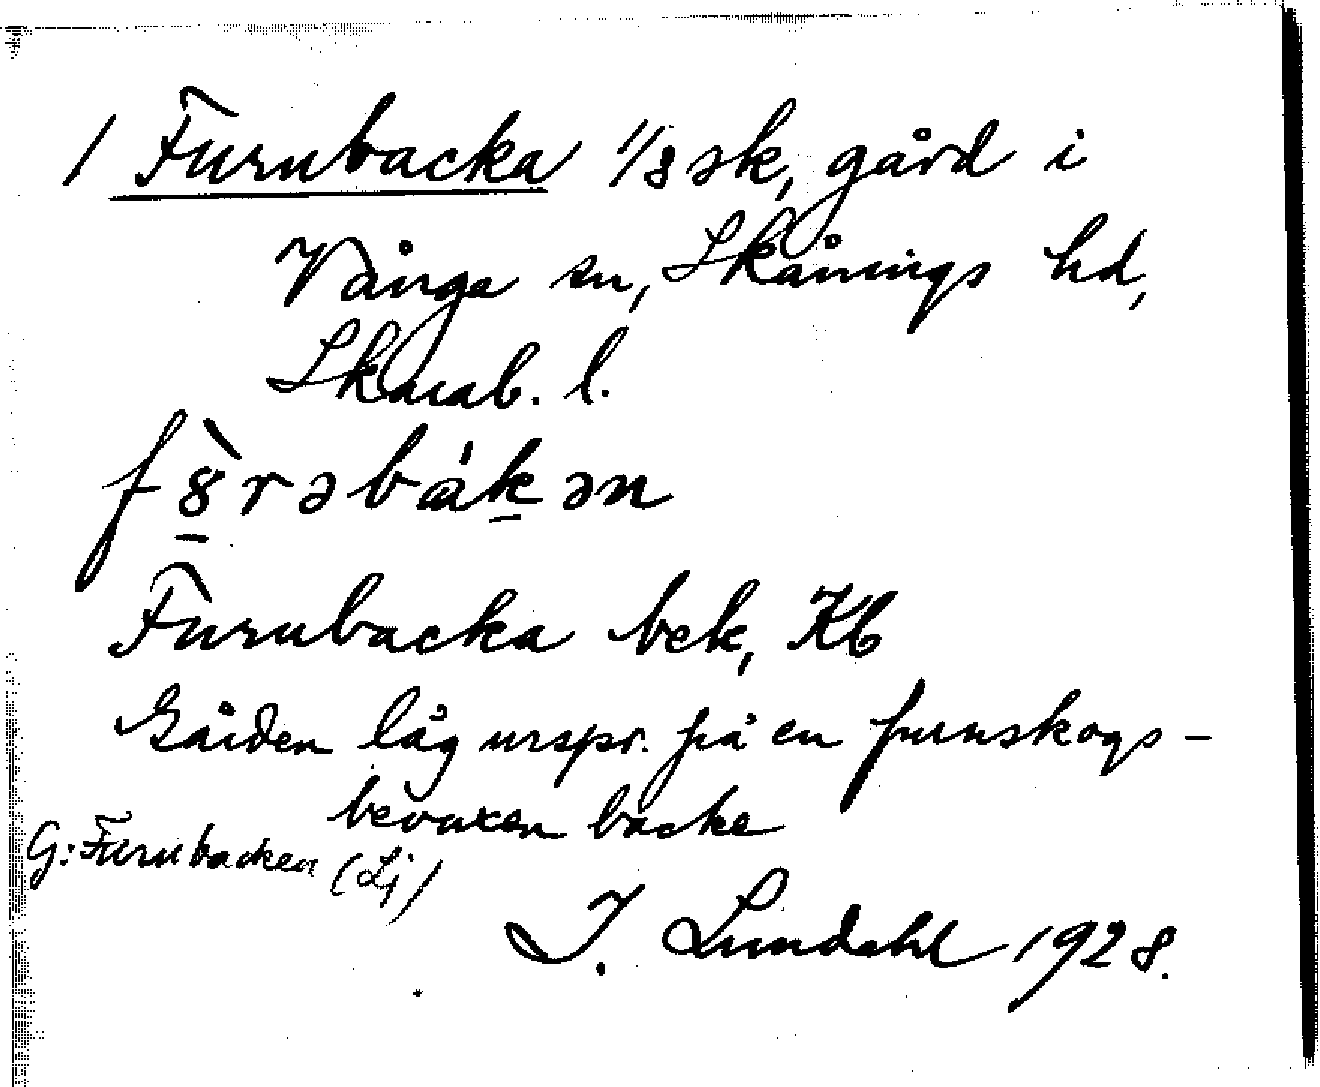 1 Furubacka 1/8 sk, gård i
Vånga sn, Skånings hd,
Skarab. l.
f8̀rəbák̠ən
Furubacka bek, Kb
Gården låg urspr. på en furuskogs-
bevuxen backe
G: Furubacken (Lj)
I. Lundahl 1928.